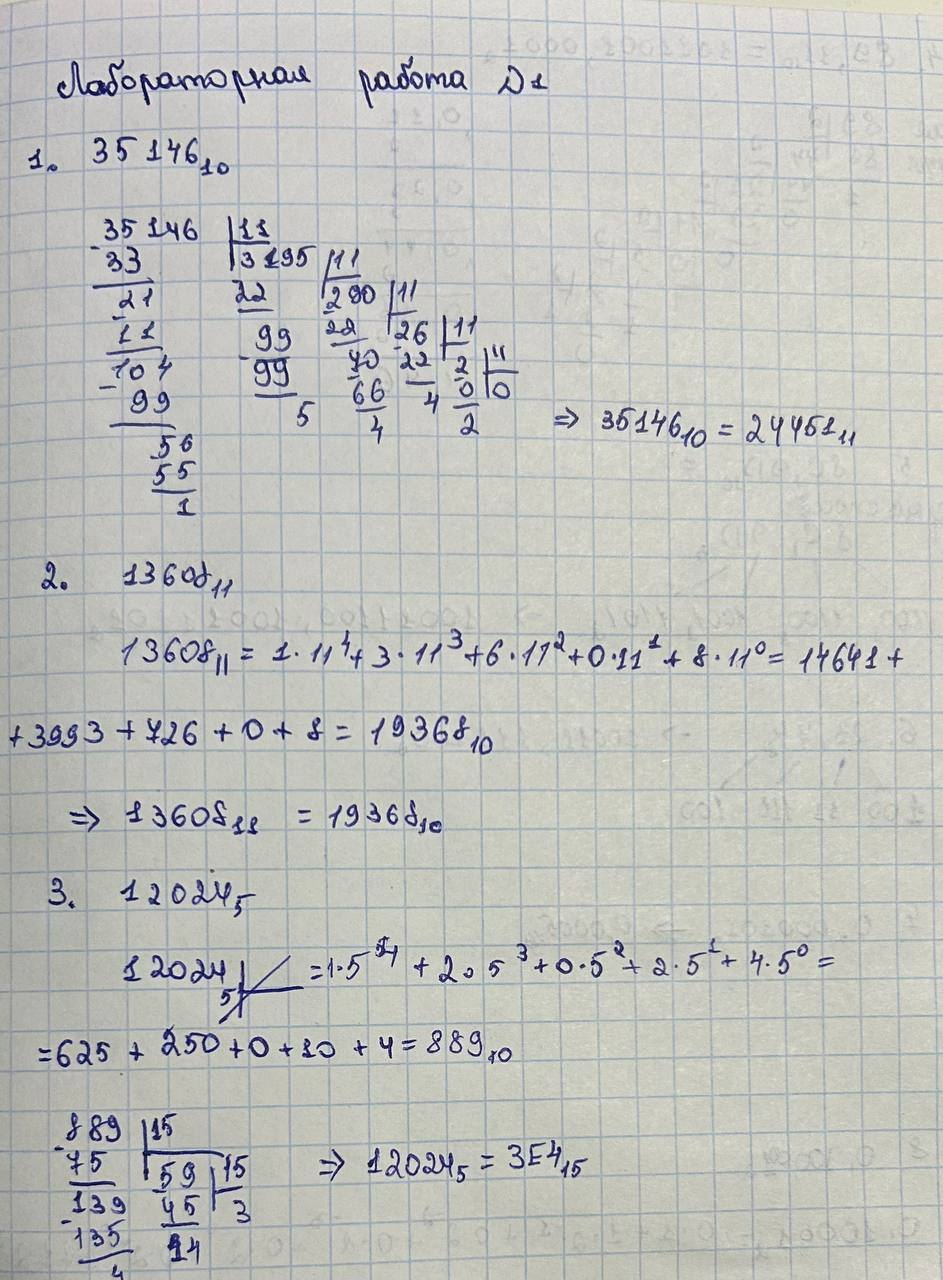 Лабораторная работа №1
1. 35146₁₀
35146 |11
-33 3195 |11
21 22 290 |11
11 99 22 26 |11
104 99 70 22 2 |11
99 5 66 4 0 0
56 4 2 ⇒ 35146₁₀ = 24451₁₁
55
1
2. 13608₁₁
13608₁₁ = 1·11⁴ + 3·11³ + 6·11² + 0·11¹ + 8·11⁰ = 14641 +
+3993 + 726 + 0 + 8 = 19368₁₀
⇒ 13608₁₁ = 19368₁₀
3. 12024₅
12024₅ = 1·5⁴ + 2·5³ + 0·5² + 2·5¹ + 4·5⁰ =
= 625 + 250 + 0 + 10 + 4 = 889₁₀
889 |15
-75 59 |15 ⇒ 12024₅ = 3E4₁₅
-139 45 3
135 14
4